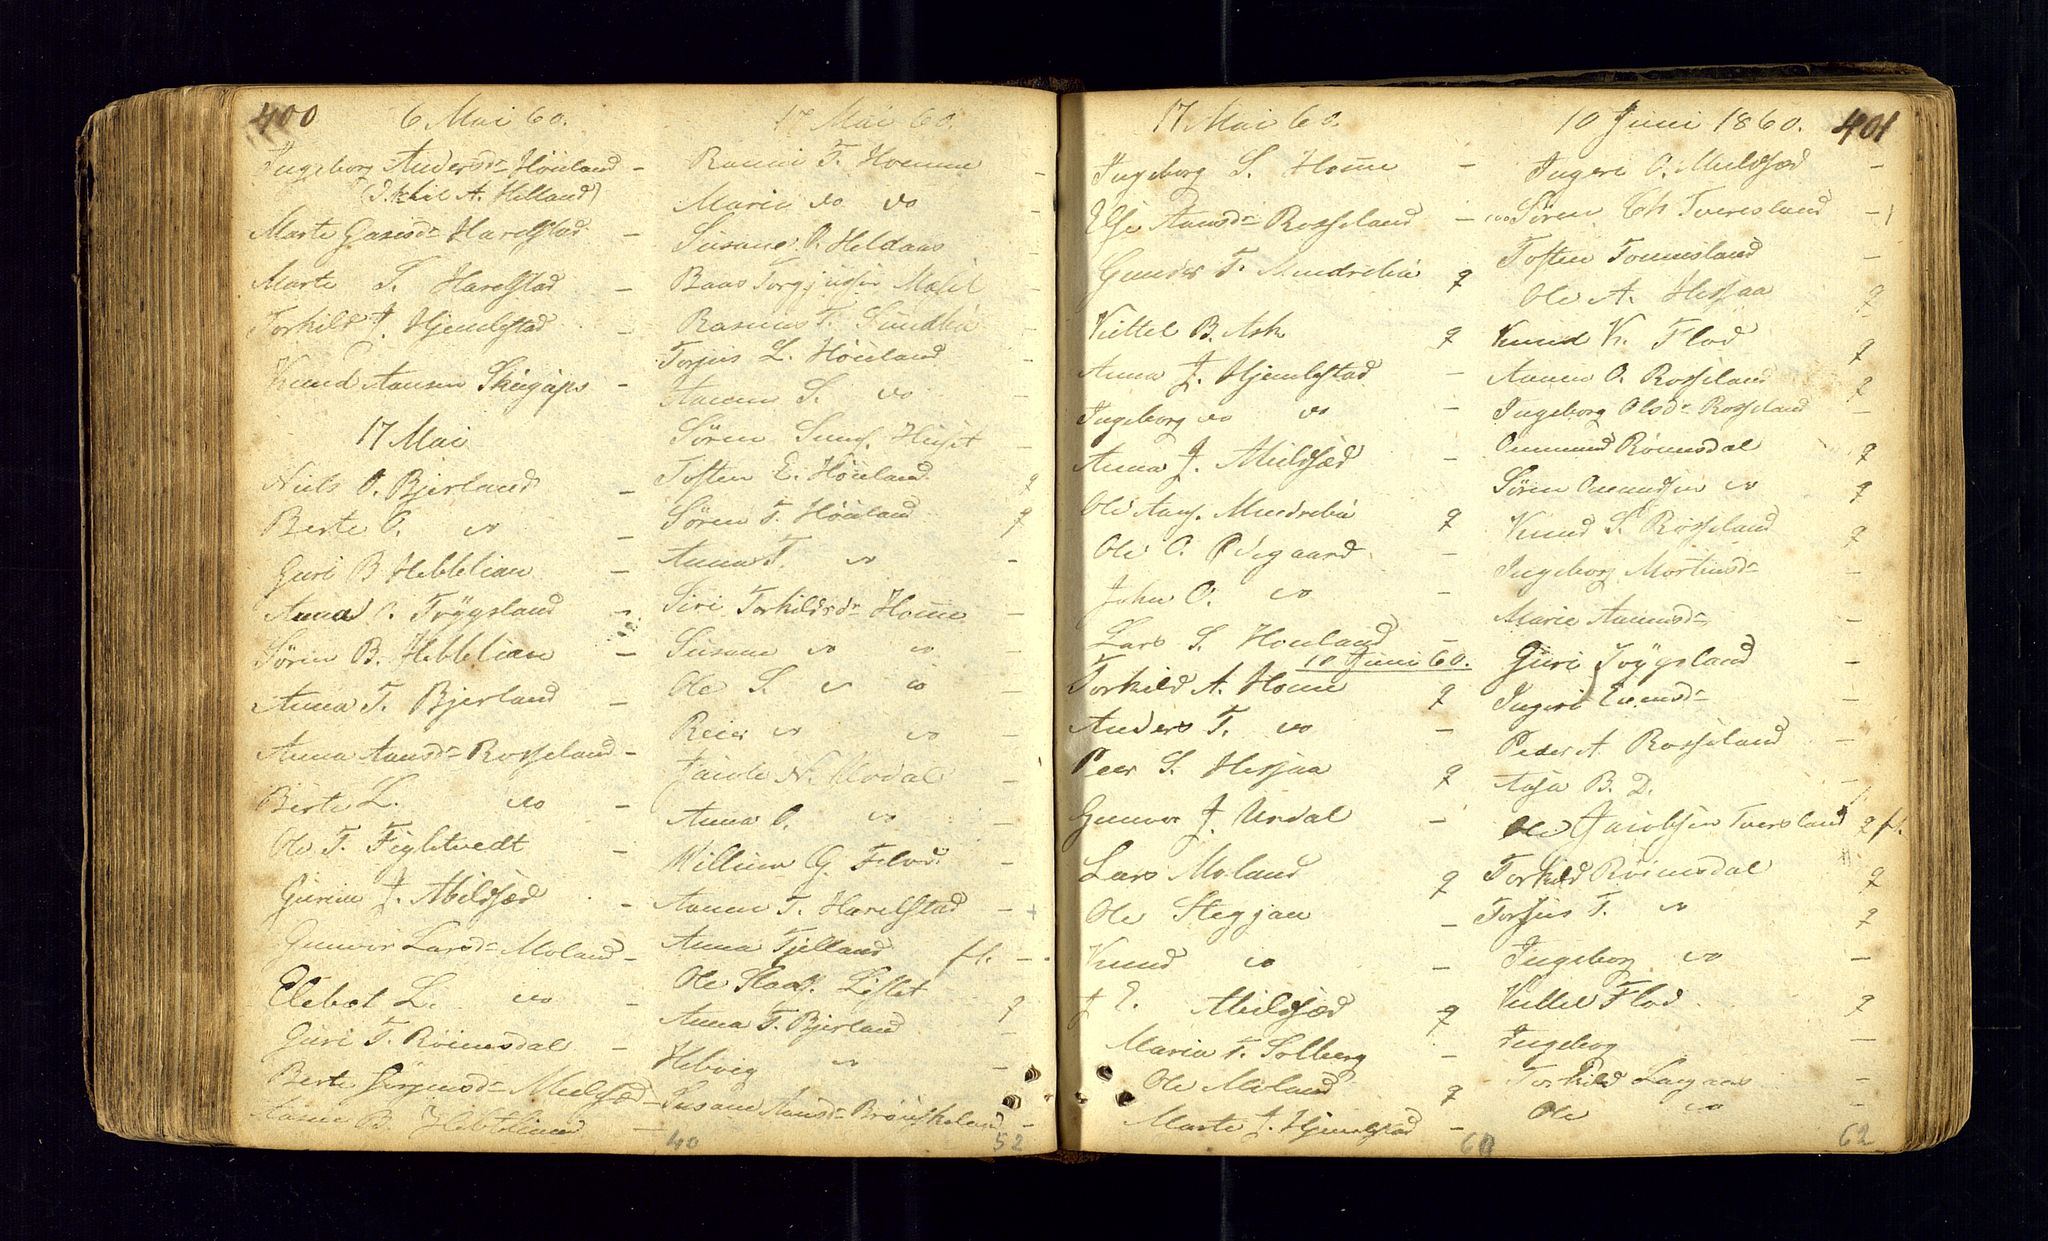 400
6 Mai 60.
Ingeborg Andersdr Hönland -
A. Hilland)
Marte Harelstad -
Marte T. Harelstad -
Torkild J. Hjemlestad -
Knud Aansen -
17 Mai
Niels O. Bjerland -
Berte O. do -
Guri B. Heblelian -
Anna O. Töygsland -
Sören B. Heblelian -
Anna T. Bjerland -
Anna Aansdr Rosseland -
Berte L. do -
Ole T. Figletvedt -
Gurine J. Mildsæd -
Gunvor Larsdr Moland -
Elebet L. do -
Guri T. Röinesdal -
Berte Mildsæd -
Aanen B. Heblelian -
17 Mai 60.
T. Homme -
Maria do do -
Susane O. Heldaas -
Baas Torgjusen -
Rasmus T. Sundlia -
Torjus L. Hönland -
Aanen S. do -
Sören Huset -
Tosten E. Hönland q
Sören T. Hönland q
Anna T. do -
Siri Torkildsdr Homme -
Susane do do -
Ole S. do do -
Reier do do -
Jacob N. Urdal -
Anna O. do -
William G. Flod -
Aanen T. Harelstad -
Anna Fjelland fl. -
Ole q
Anna T. Bjerland -
do -
Susane -
40
52
17 Mai 60.
Ingeborg S. Homme -
Else Aansdr Rosseland -
Gunder T. Mindrebö q
Kittel B. Ask q
Anna J. Hjemlestad -
Ingeborg do do -
Anna J. Mildsæd -
Ole Aans. Mindrebö q
Ole O. Ødegaard -
John O. do -
Lars S. Honland -
10 Juni 60.
Torkild A. Homme q
Anders T. do -
Peer S. Hesjaa q
Gunvor J. Urdal -
Lars Moland q
Ole Steggjan -
Knud do -
J E. Mildsæd q
Maria T. Solberg -
Ole Moland q
Marte J. Hjemlestad -
60
10 Juni 1860.
401
Ingeri O. Mildsæd -
Sören Ch Tveresland -1
Tosten Tomesland -
Ole A. Hesjaa q
Knud K. Flod q
Aanen O. Rosseland q
Ingeborg Olsdr Rosseland -
Omund Röinesdal q
Sören Omundsen do q
Knud S. Rosseland q
Ingeborg Mortensdr -
Marie Aanensdr -
Guri Töygsland -
Ingeri -
Peder A Rosseland -
Assa B. D. -
Ole Jacobsen Tveresland q fl.
Torkild Röinesdal q
Torjus T. do q
Ingeborg do -
Kittel Flod q
Ingeborg -
Torkild Laugaas -
Ole do -
62